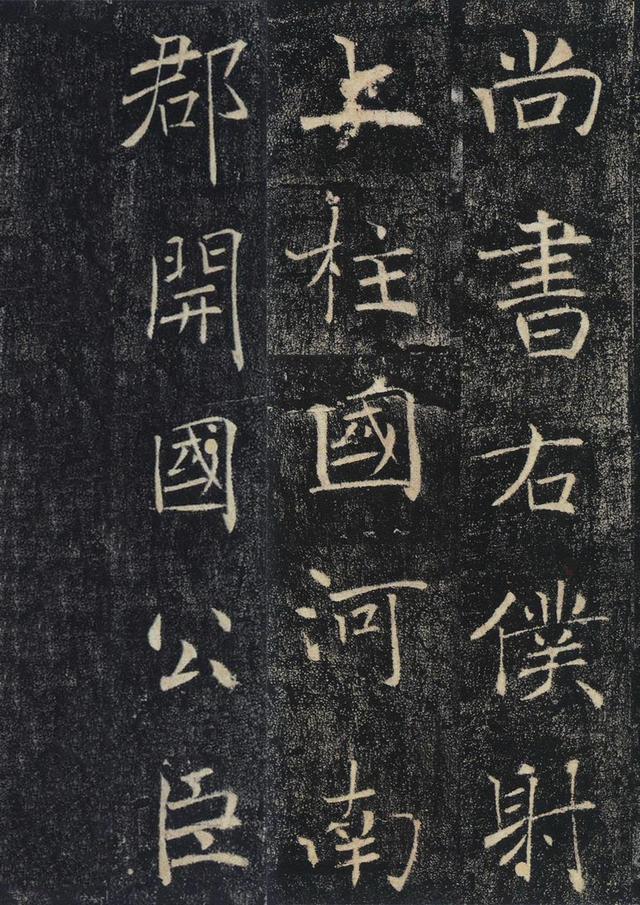 尚書右僕射
上柱國河南
郡開國公臣